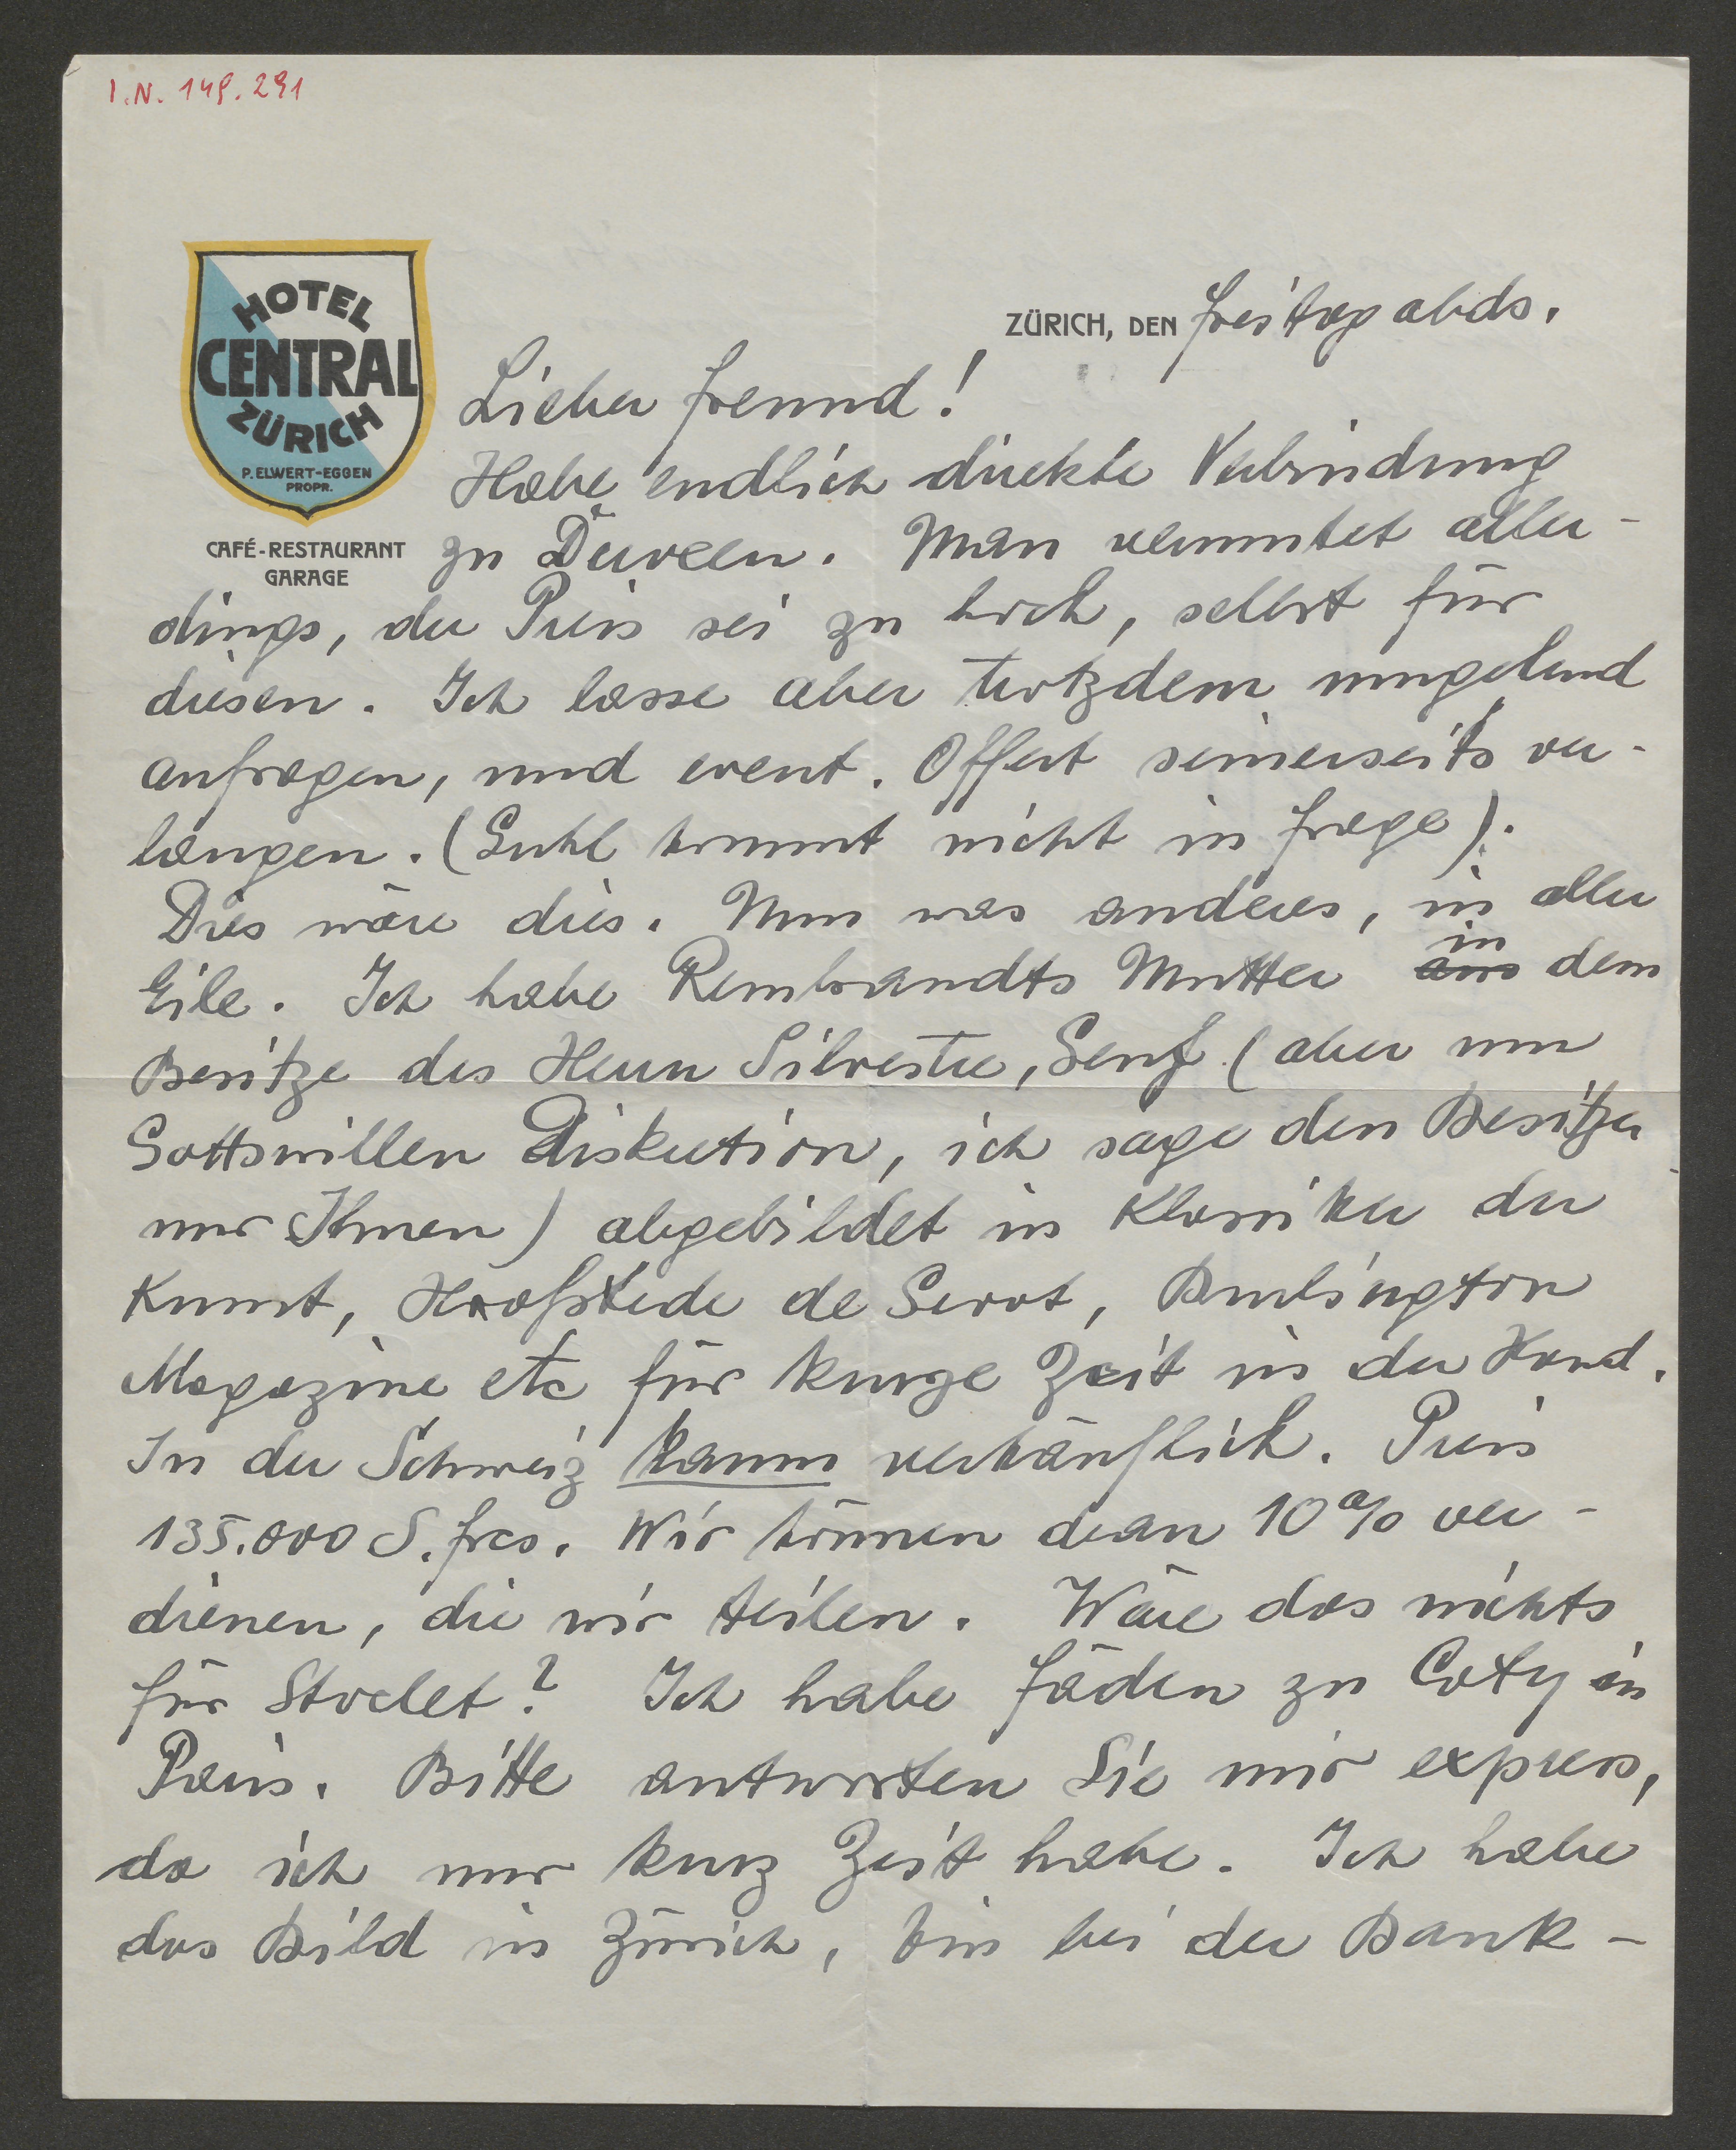 I.N. 149.291
HOTEL
CENTRAL
ZÜRICH
P. ELWERT-EGGEN
PROPR.
CAFÉ-RESTAURANT
GARAGE
ZÜRICH, DEN Freitag abds.
Lieber Freund!
Habe endlich direkte Verbindung
zu Duveen. Man vermutet aller-
dings, der Preis sei zu hoch, selbst für
diesen. Ich lasse aber trotzdem umgehend
anfragen, und event. Offert seinerseits ver-
langen. (Guhl kommt nicht in Frage).
Dies wäre dies. Nun was anderes, in aller
Eile. Ich habe Rembrandts Mutter aus in dem
Besitze des Herrn Silvestre, Genf (aber um
Gottswillen Diskretion, ich sage den Besitzer
nur Ihnen) abgebildet in Klassiker der
Kunst, Hoofstede de Groot, Burlington
Magazine etc für kurze Zeit in der Hand.
In der Schweiz kaum verkäuflich. Preis
135.000 S. frcs. Wir können daran 10% ver-
dienen, die wir teilen. Wäre das nichts
für Stoclet? Ich habe Fäden zu Coty in
Paris. Bitte antworten Sie mir express,
da ich nur kurz Zeit habe. Ich habe
das Bild in Zürich, bin bei der Bank-